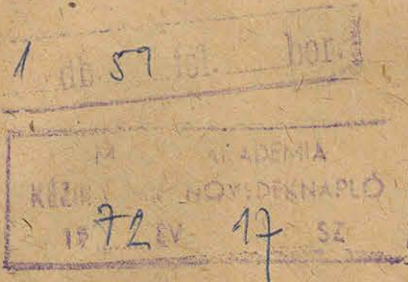 1 db. 59 fol. bor.
M AKADÉMIA
KÉZIR NÖVEDÉKNAPLÓ
1972 ÉV 17 SZ